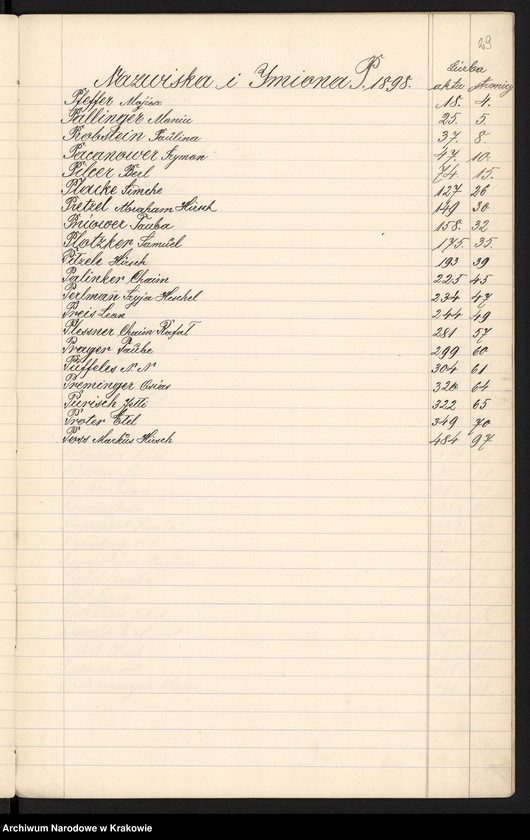 29
Nazwiska i Imiona P. 1898.
Liczba
aktu stronicy
Pfeffer Mojżesz 18. 4.
Pallinger Maniu 25. 5.
Probstein Paulina 37. 8.
Pacanower Szymon 47. 10.
Pilcer Berl 74. 15.
Placke Simche 127 26
Pretzel Abraham Hirsch 149 30
Tauba 158. 32
Plotzker Samuel 175. 35.
Pitzele Hirsch 193 39
Palinker Chaim 225 45
Perlman Szyja Heschel 234 47
Preis Leon 244 49
Plessner Chaim Rafał 281 57
Prager Taube 299 60
Püffeles N N 304 61
Preminger Osias 320 64
Purisch Jitti 322 65
Proter Etel 349 70
Poss Markus Hirsch 484 97
Archiwum Narodowe w Krakowie